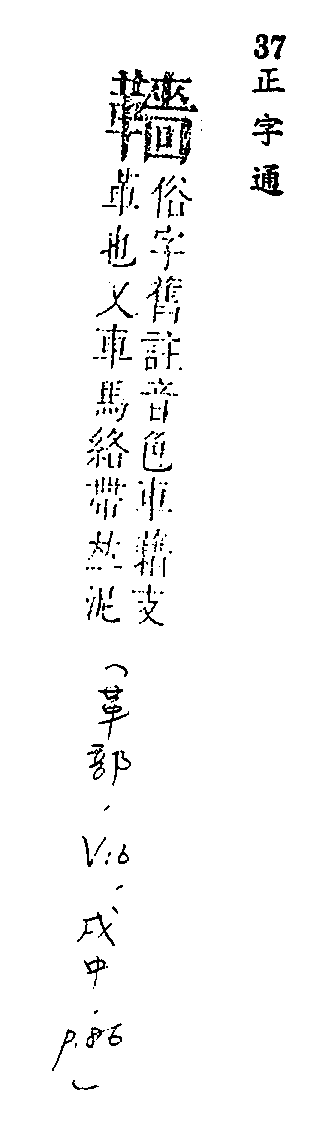 37 正字通
俗字舊註音色車支
革也又車馬絡帶泥
（革部，V:6，戌中，p.86）